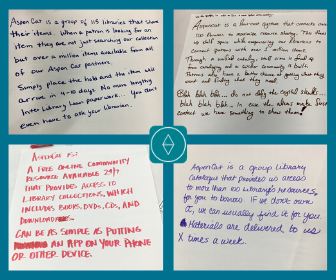 Aspen Cat is a group of 115 libraries that share
their items. When a patron is looking for an
item they are not just searching our collection
but over a million items available from all
of our Aspen Cat partners.
Simply place the hold and the item will
arrive in 4-10 days. No more lengthy
Inter Library Loan paperwork... You don't
even have to ask your librarian.
AspenCat is a
that connects over
100
to
resource sharing. This
us
while empowering our librarians to
connect patrons with over 1 million items.
Through a unified catalog, staff time is freed up
from cataloging and a wider community is built.
Patrons also have a better chance of getting what they
want and finding what they need.
Blah blah blah... do not defy the crystal skulls...
blah blah blah... in case the
make
contact we have something to show them!
AspenCat is:
A FREE ONLINE COMMUNITY
RESOURCE AVAILABLE 24/7
THAT PROVIDES ACCESS TO
LIBRARY COLLECTIONS, WHICH
INCLUDES BOOKS, DVDS, CDS, AND
DOWNLOAD
CAN BE AS SIMPLE AS PUTTING
AN APP ON YOUR PHONE
OR OTHER DEVICE.
AspenCat is a group library
catalogue that provides us access
to more than 100 library's resources
for you to borrow. If we don't own
it, we can usually find it for you.
Materials are delivered to us
X times a week.